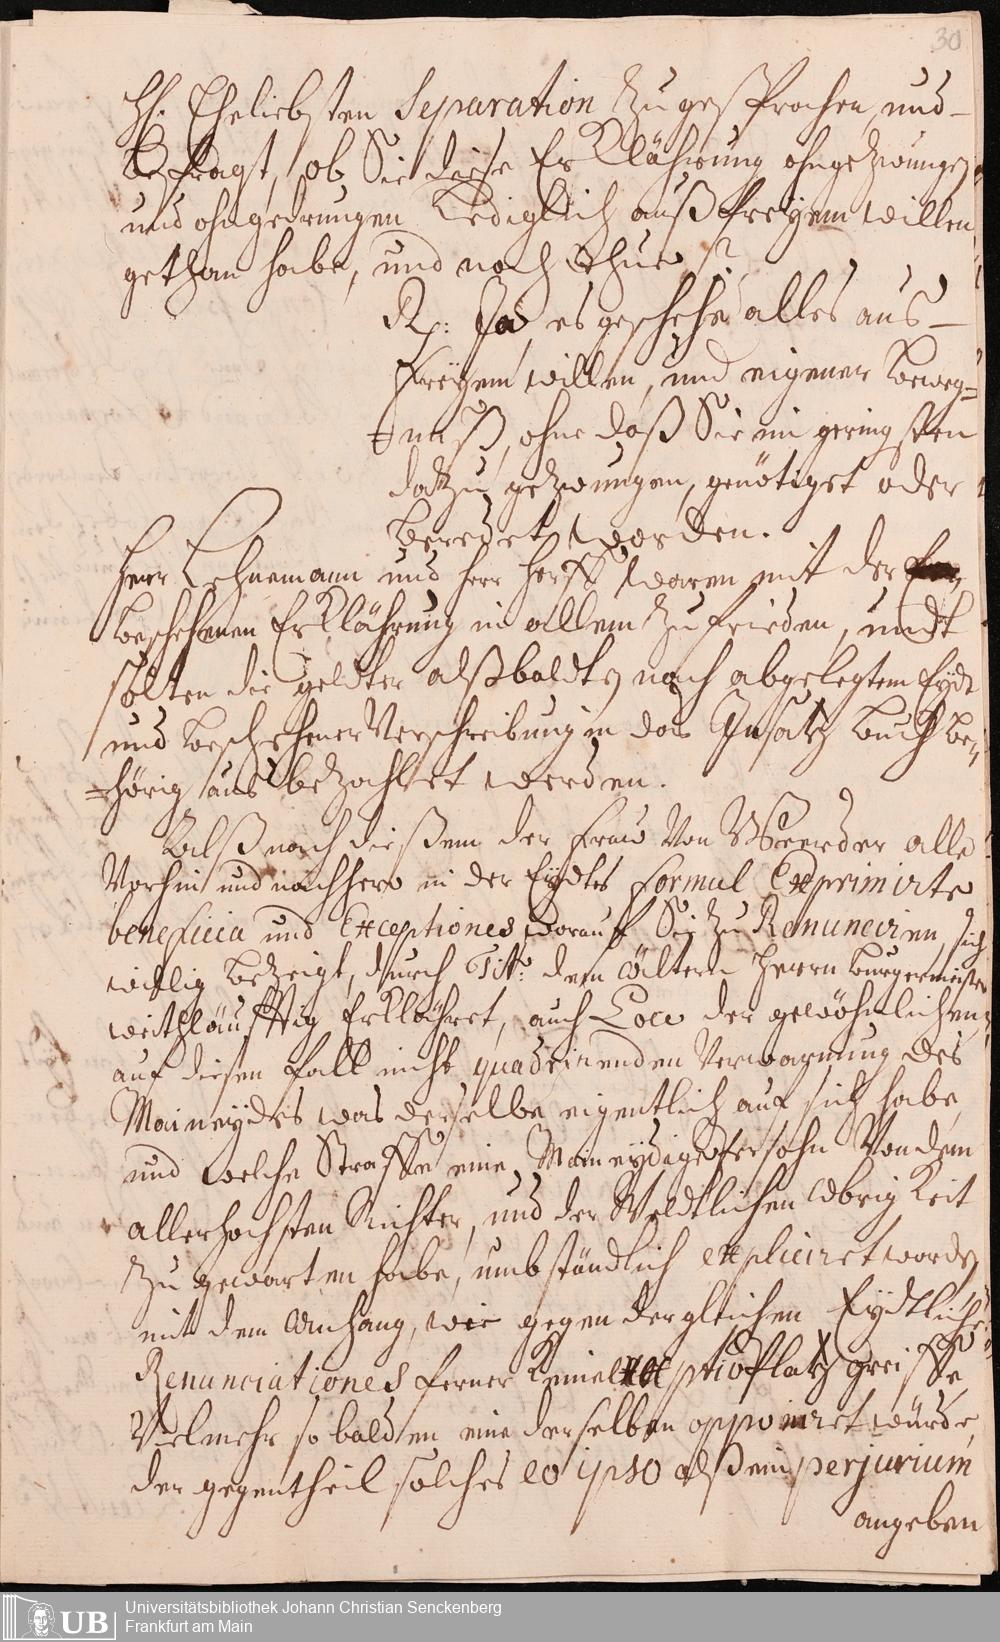 30
HE. Eheliebsten Separation zugesprochen, und
befragt, ob Sie diese Erklährung ohngezwungen
und ohngedrungen Lediglich auß freyem willen
gethan habe, und noch thue?
Rp: Ja, es geschehe alles aus
freyem willen, und eigener beweg-
nuß, ohne daß Sie im geringsten
dazu gezwungen, genötiget oder
beredet worden.
Herr Lehnemann und Herr Horst waren mit der
beschehenen Erklährung in allem zufrieden, undt
solten die geldter alßbaldten nach abgelegtem Eydt
und beschehener Verschreibung in das Insatz buch be-
hörig aus bezahlet werden.
Alß nach dießem der Frau Von Weerder alle
Vorhin und nachhero in der Eydtes Formul Exprimirte
beneficia und Exceptiones, worauf Sie zu Renunciren, sich
willig bezeigt, durch Titt: den ältern Herrn burgermeister
weithläufftig erklähret, auch Loco der gewöhnlichen,
auf diesen fall nicht quadrirenden Verwarnung des
Maineydes was derselbe eigentlich auf sich habe,
und welche Straffe eine Maineydige Persohn Von dem
allerhöchsten Richter, und der Weldtlichen Obrigkeit
zu gewarten habe, umbständlich expliciret worden
mit dem Anhang, wie gegen dergleichen Eydtliche
Renunciationes ferner keine Exceptio platz greiffe,
Vielmehr so balden eine derselben opponiret würde,
der gegentheil solches eo ipso alß ein perjurium
angeben
UB
Universitätsbibliothek Johann Christian Senckenberg
Frankfurt am Main